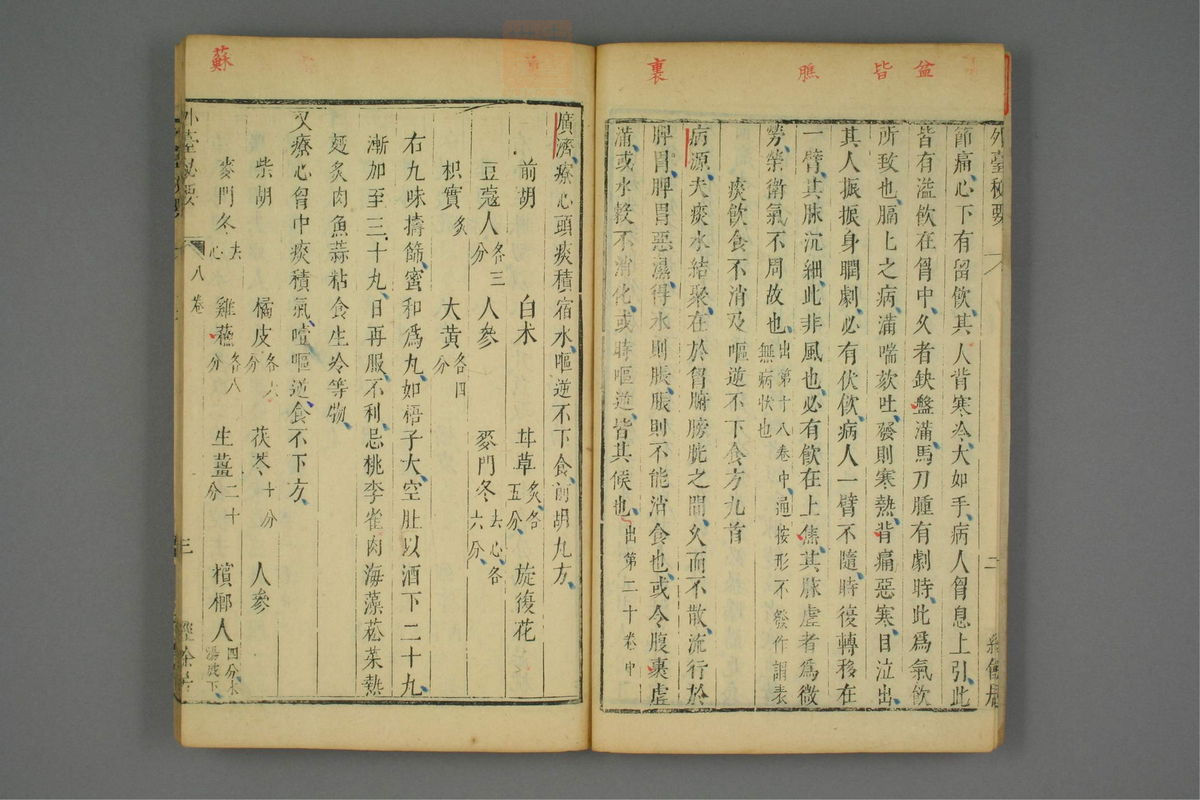 盆
皆
膲
裏
外臺秘要
八
二
節痛心下有留飲其人背寒冷大如手病人胷息上引此
皆有溢飲在胷中久者缺盤滿馬刀腫有劇時此爲氣飲
所致也膈上之病滿喘欬吐發則寒熱背痛惡寒目泣出
其人振振身瞤劇必有伏飲病人一臂不隨時復轉移在
一臂其脉沉細此非風也必有飲在上焦其脉虛者爲微
勞榮衛氣不周故也出第十八卷中通按形不發作謂表無病狀也
痰飲食不消及嘔逆不下食方九首
病源夫痰水結聚在於胷腑膀胱之間久而不散流行於
脾胃脾胃惡濕得水則脹脹則不能消食也或令腹裹虛
滿或水穀不消化或時嘔逆皆其候也出第二十卷中
蘇
廣濟療心頭痰積宿水嘔逆不下食前胡丸方
前胡 白朮 甘草炙各五分 旋復花
豆蔻人各三分 人參 麥門冬去心各六分
枳實炙 大黃各四分
右九味擣篩蜜和爲丸如梧子大空肚以酒下二十九
漸加至三十丸日再服不利忌桃李雀肉海藻菘菜熱
麪炙肉魚蒜粘食生冷等物
又療心胷中痰積氣噎嘔逆食不下方
柴胡 橘皮各六分 茯苓十分 人參
麥門冬去心 雞蘇各八分 生薑二十分 檳榔人四分末湯成下
外臺秘要
八卷
三
經餘居